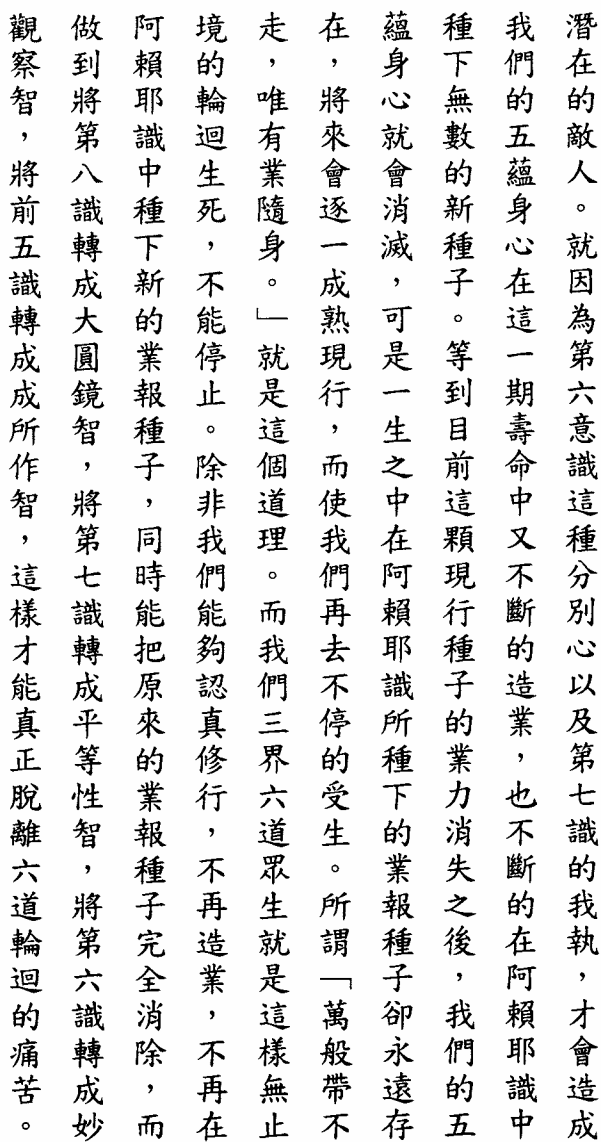 潛在的敵人。就因為第六意識這種分別心以及第七識的我執，才會造成
我們的五蘊身心在這一期壽命中又不斷的造業，也不斷的在阿賴耶識中
種下無數的新種子。等到目前這顆現行種子的業力消失之後，我們的五
蘊身心就會消滅，可是一生之中在阿賴耶識所種下的業報種子卻永遠存
在，將來會逐一成熟現行，而使我們再去不停的受生。所謂「萬般帶不
走，唯有業隨身。」就是這個道理。而我們三界六道眾生就是這樣無止
境的輪迴生死，不能停止。除非我們能夠認真修行，不再造業，不再在
阿賴耶識中種下新的業報種子，同時能把原來的業報種子完全消除，而
做到將第八識轉成大圓鏡智，將第七識轉成平等性智，將第六識轉成妙
觀察智，將前五識轉成成所作智，這樣才能真正脫離六道輪迴的痛苦。